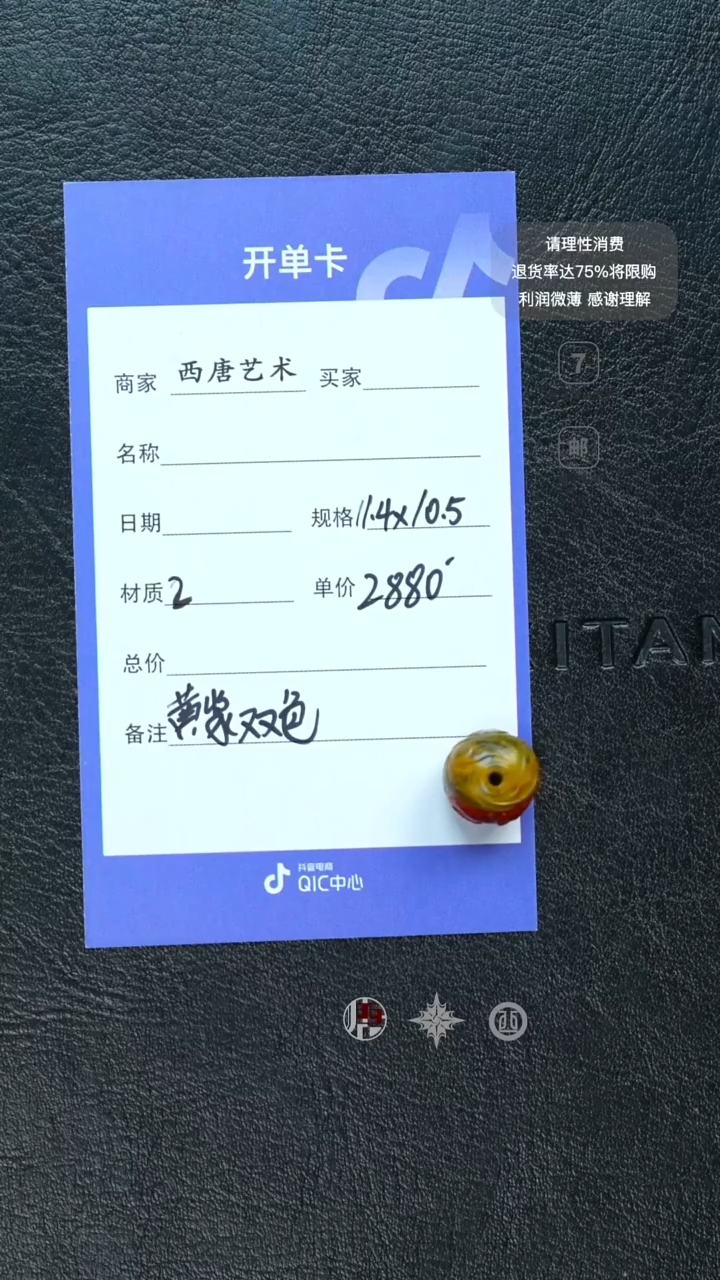 开单卡
请理性消费
退货率达75%将限购
利润微薄 感谢理解
7
邮
商家 西唐艺术 买家
名称
日期 规格 11.4x10.5
材质 2 单价 2880
总价
备注 黄紫双色
ITAN
抖音电商
QIC中心
西